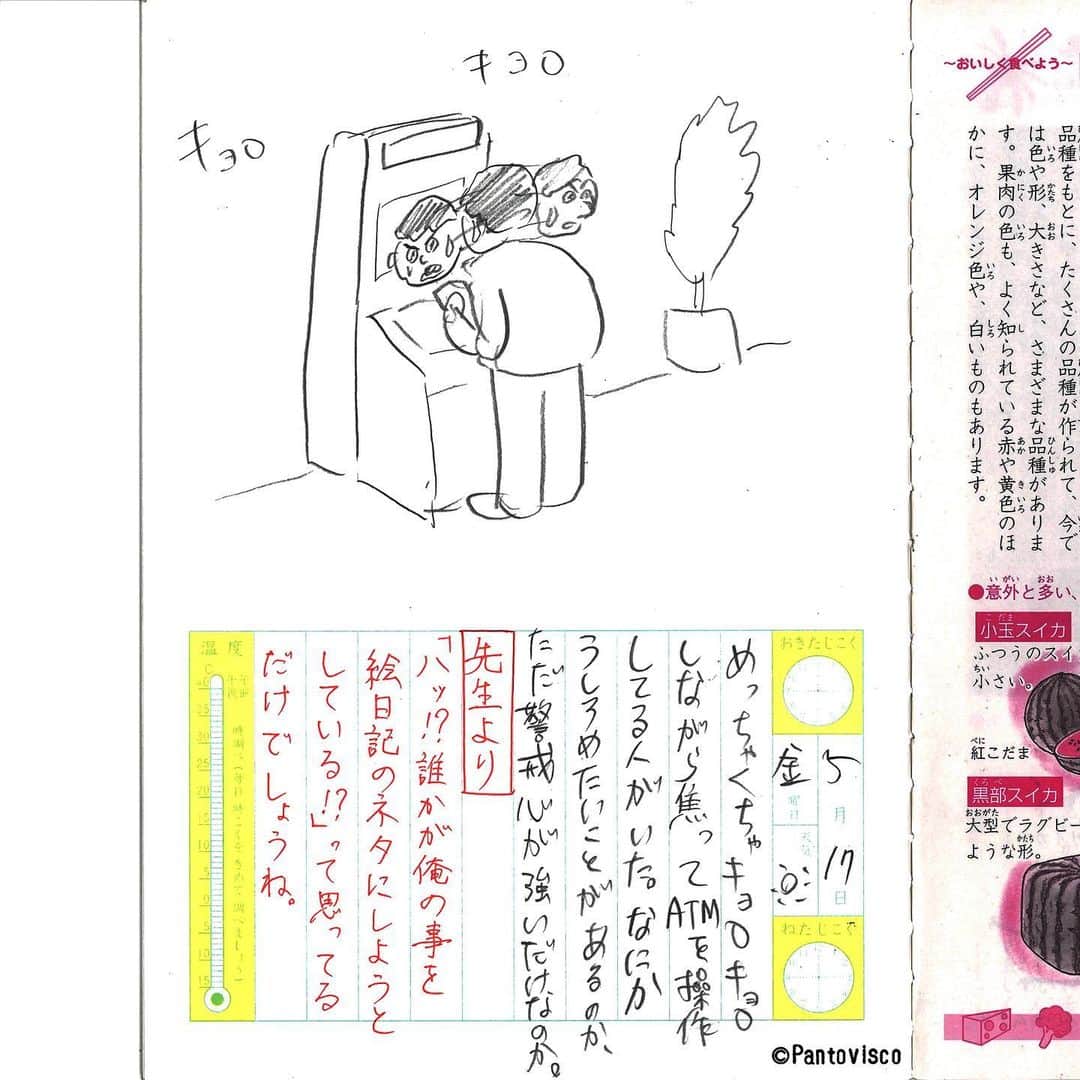 キョロ
キョロ
おきたじこく
5月17日
金曜日
天気
ねたじこく
めっちゃくちゃキョロキョロ
しながら焦ってATMを操作
してる人がいた。なにか
うしろめたいことがあるのか、
ただ警戒心が強いだけなのか。
先生より
「ハッ!?誰かが俺の事を
絵日記のネタにしようと
している!?」って思ってる
だけでしょうね。
温度
©Pantovisco
〜おいしく食べよう〜
品種をもとに、たくさんの品種が作られて、今で
は色や形、大きさなど、さまざまな品種がありま
す。果肉の色も、よく知られている赤や黄色のほ
かに、オレンジ色や、白いものもあります。
●意外と多い、
小玉スイカ
ふつうのスイ
小さい。
紅こだま
黒部スイカ
大型でラグビー
ような形。